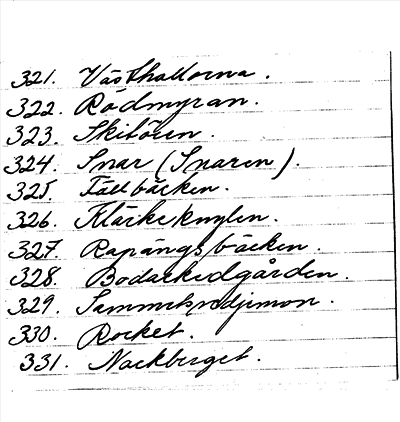 321. Västhallorna.
322. Rödmyran.
323. Skitören.
324. Snar (Snaren).
325. Fällbäcken.
326. Kläckeknylen.
327. Rapängsbäcken.
328. Bodarkedgården.
329.
330. Rocket.
331. Nackberget.